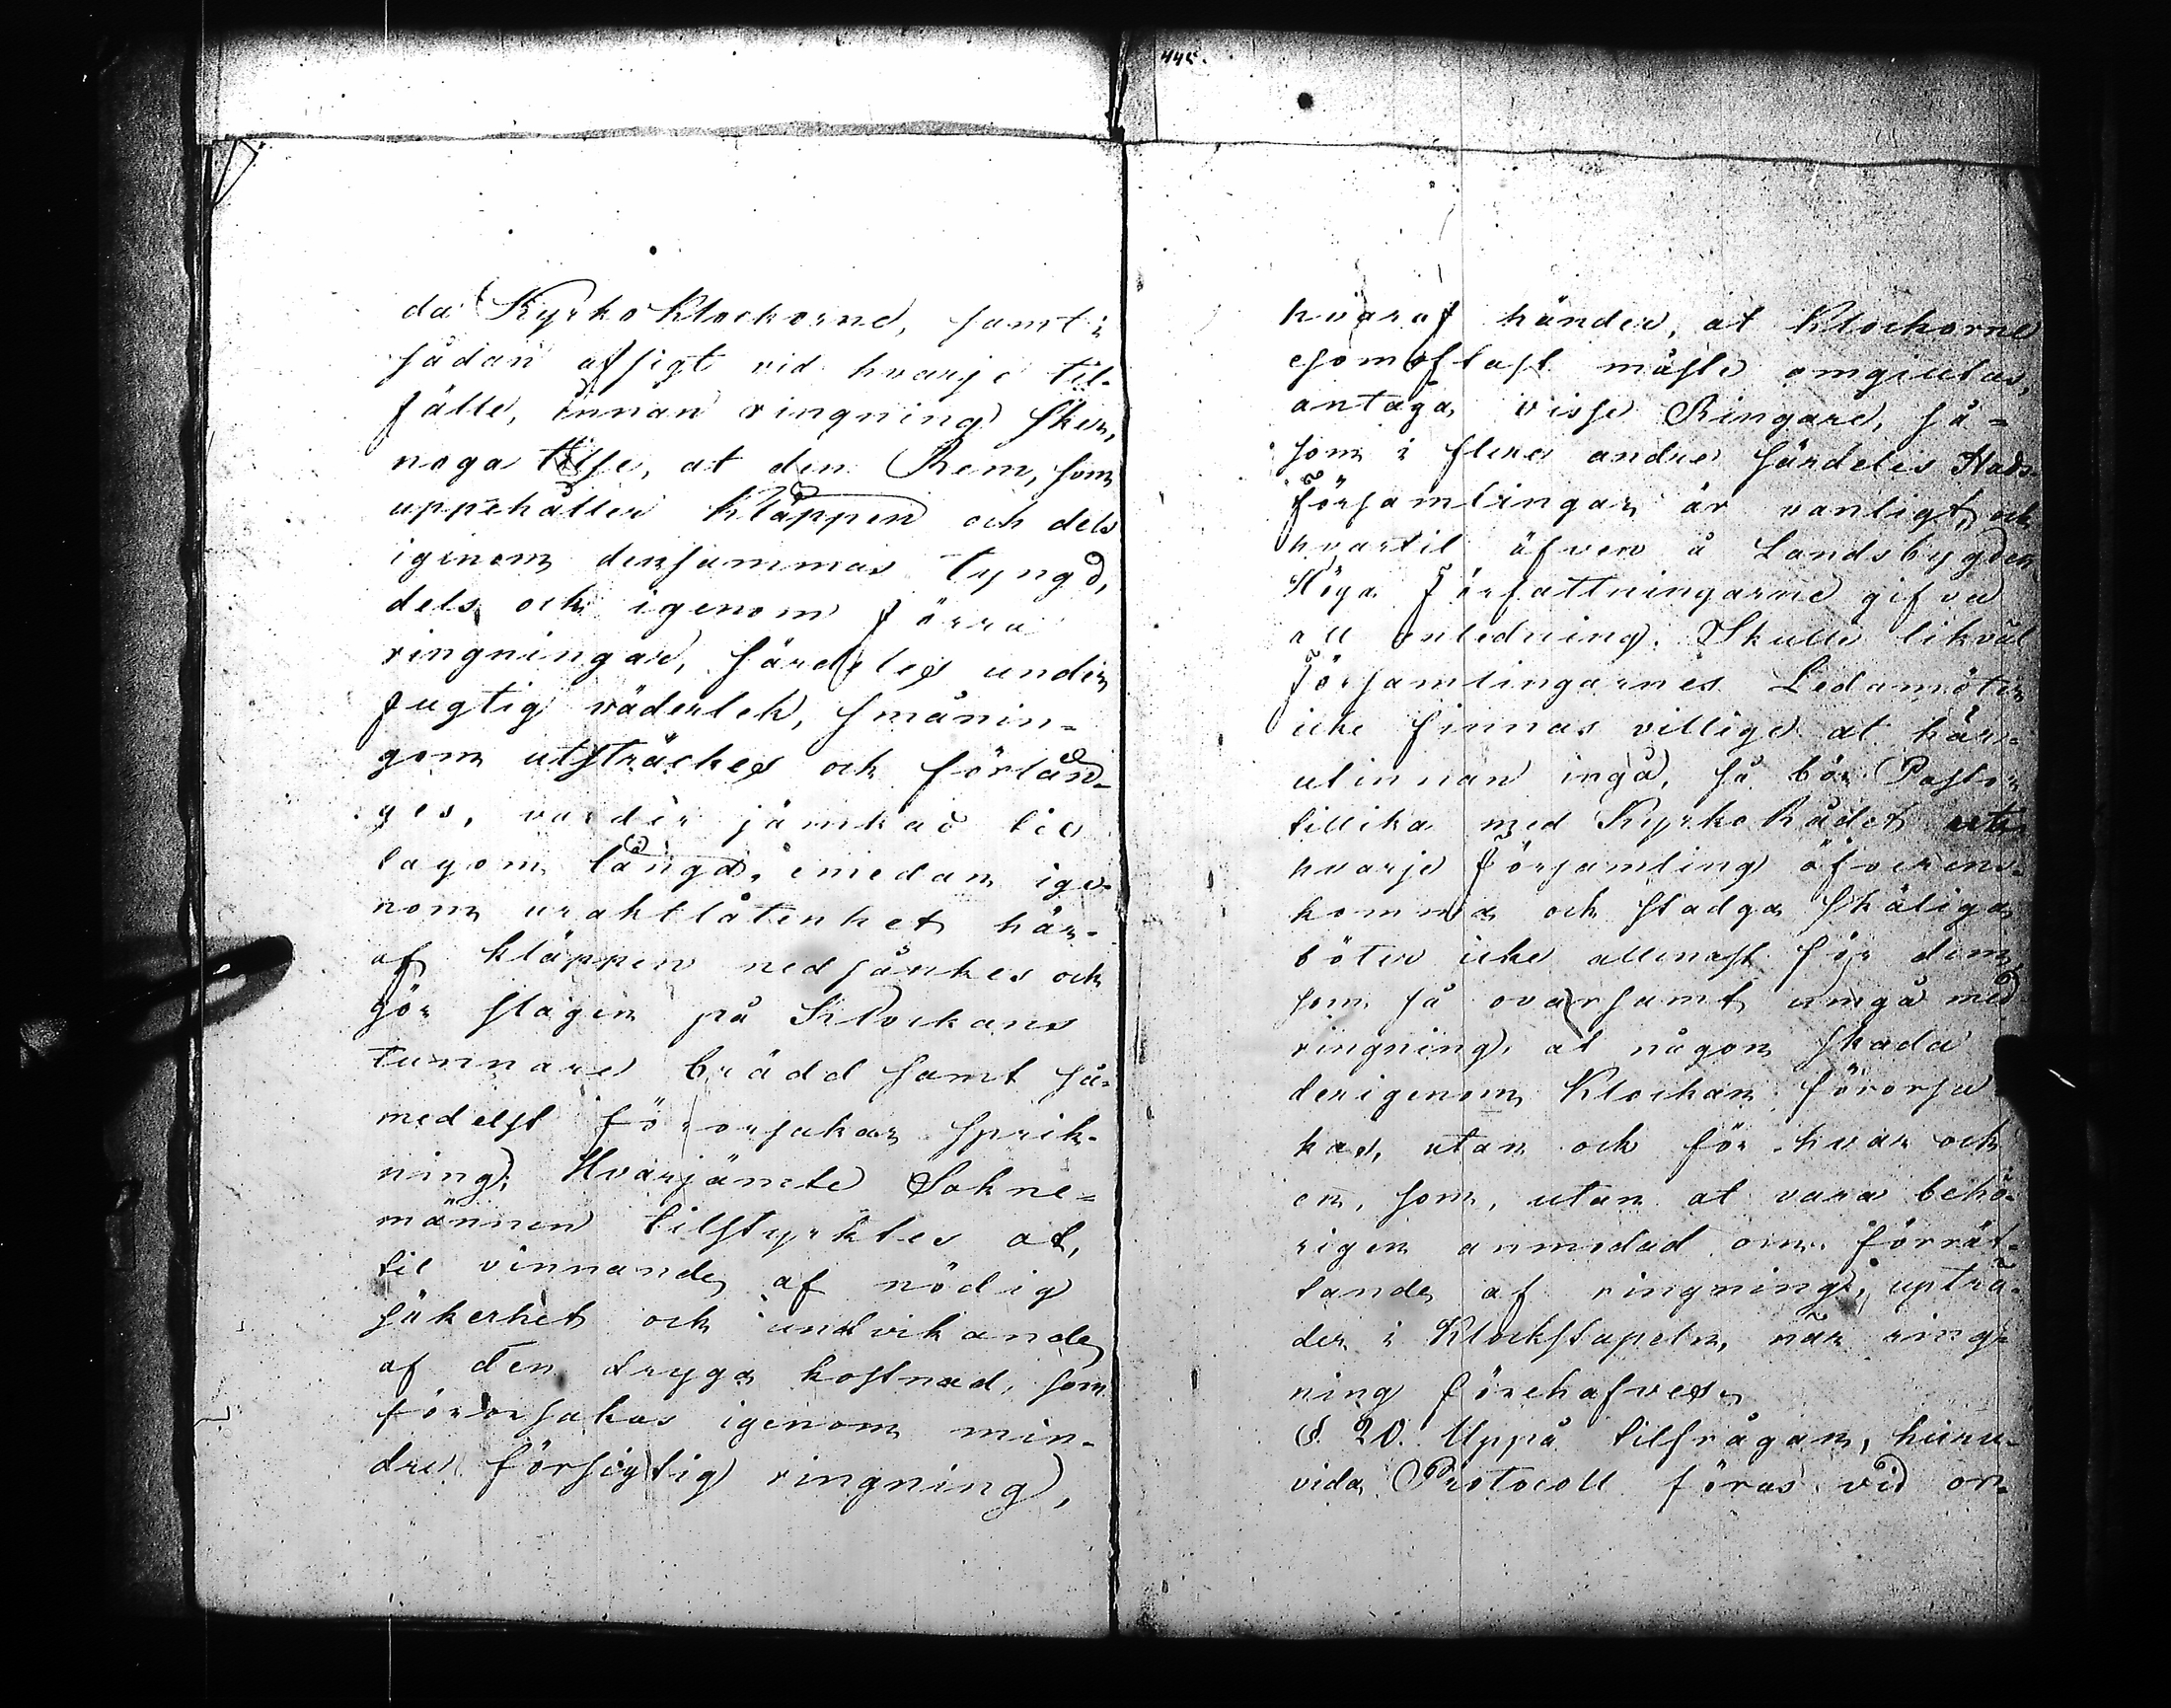 da Kyrko Klockorne, samt i
sådan afsigt vid hvarje til-
fälle, innan ringning sker,
noga tilse, at den Rem, som
uppehåller Kläppen och dels
igenom densammas tyngd,
dels och igenom förra
ringningar, särdeles under
fugtig väderlek, smånin-
gom utsträckes och förlän-
ges, varder jämkad til
lagom längd, emedan ige-
nom uraktlåtenhet här-
af kläppen nedsänkes och
gör slagen på Klockans
tunnare brädd samt så-
medelst förorsakar sprik-
ning; Hvarjämte Sokne-
männen tilstyrktes at,
til vinnande af nödig
säkerhet och undvikande
af den dryga kostnad, som
förorsakas igenom min-
dre försigtig ringning,
445.
hvaraf händer, at Klockorne
esomoftast måste omgiutas,
antaga visse Ringare, så-
som i flere andre särdeles Stads
Församlingar är vanligt, och
hvartil äfven å Landsbygden
Höga Författningarne gifva
all anledning. Skulle likväl
Församlingarnes Ledamöter
icke finnas villige at här-
utinnan ingå, så bör Pastor
tillika med Kyrko Rådet uti
hvarje Församling öfverens-
komma och stadga skäliga
böter icke allenast för dem,
som så ovarsamt umgå med
ringning, at någon skada
derigenom Klockan förorsa
kas, utan och för hvar och
en, som, utan at vara behö-
rigen anmodad om förrät-
tande af ringning, upträ-
der i Klockstapeln, när ring-
ning förehafves.
§. 20. Uppå tilfrågan, huru-
vida Protocoll föras vid or-